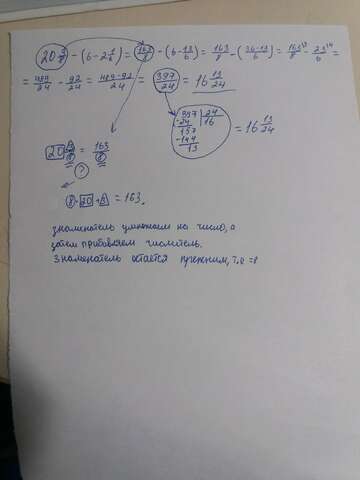 20 3/8 - (6 - 2 1/6) = 163/8 - (6 - 13/6) = 163/8 - (36-13/6) = 163/8 - 23/6 =
= 489/24 - 92/24 = 489-92/24 = 397/24 = 16 13/24
397 | 24
-24 | 16
157
-144
13
= 16 13/24
20 3/8 = 163/8
?
8·20+3 = 163.
знаменатель умножаем на число, а
затем прибавляем числитель.
Знаменатель остаётся прежним, т.е =8